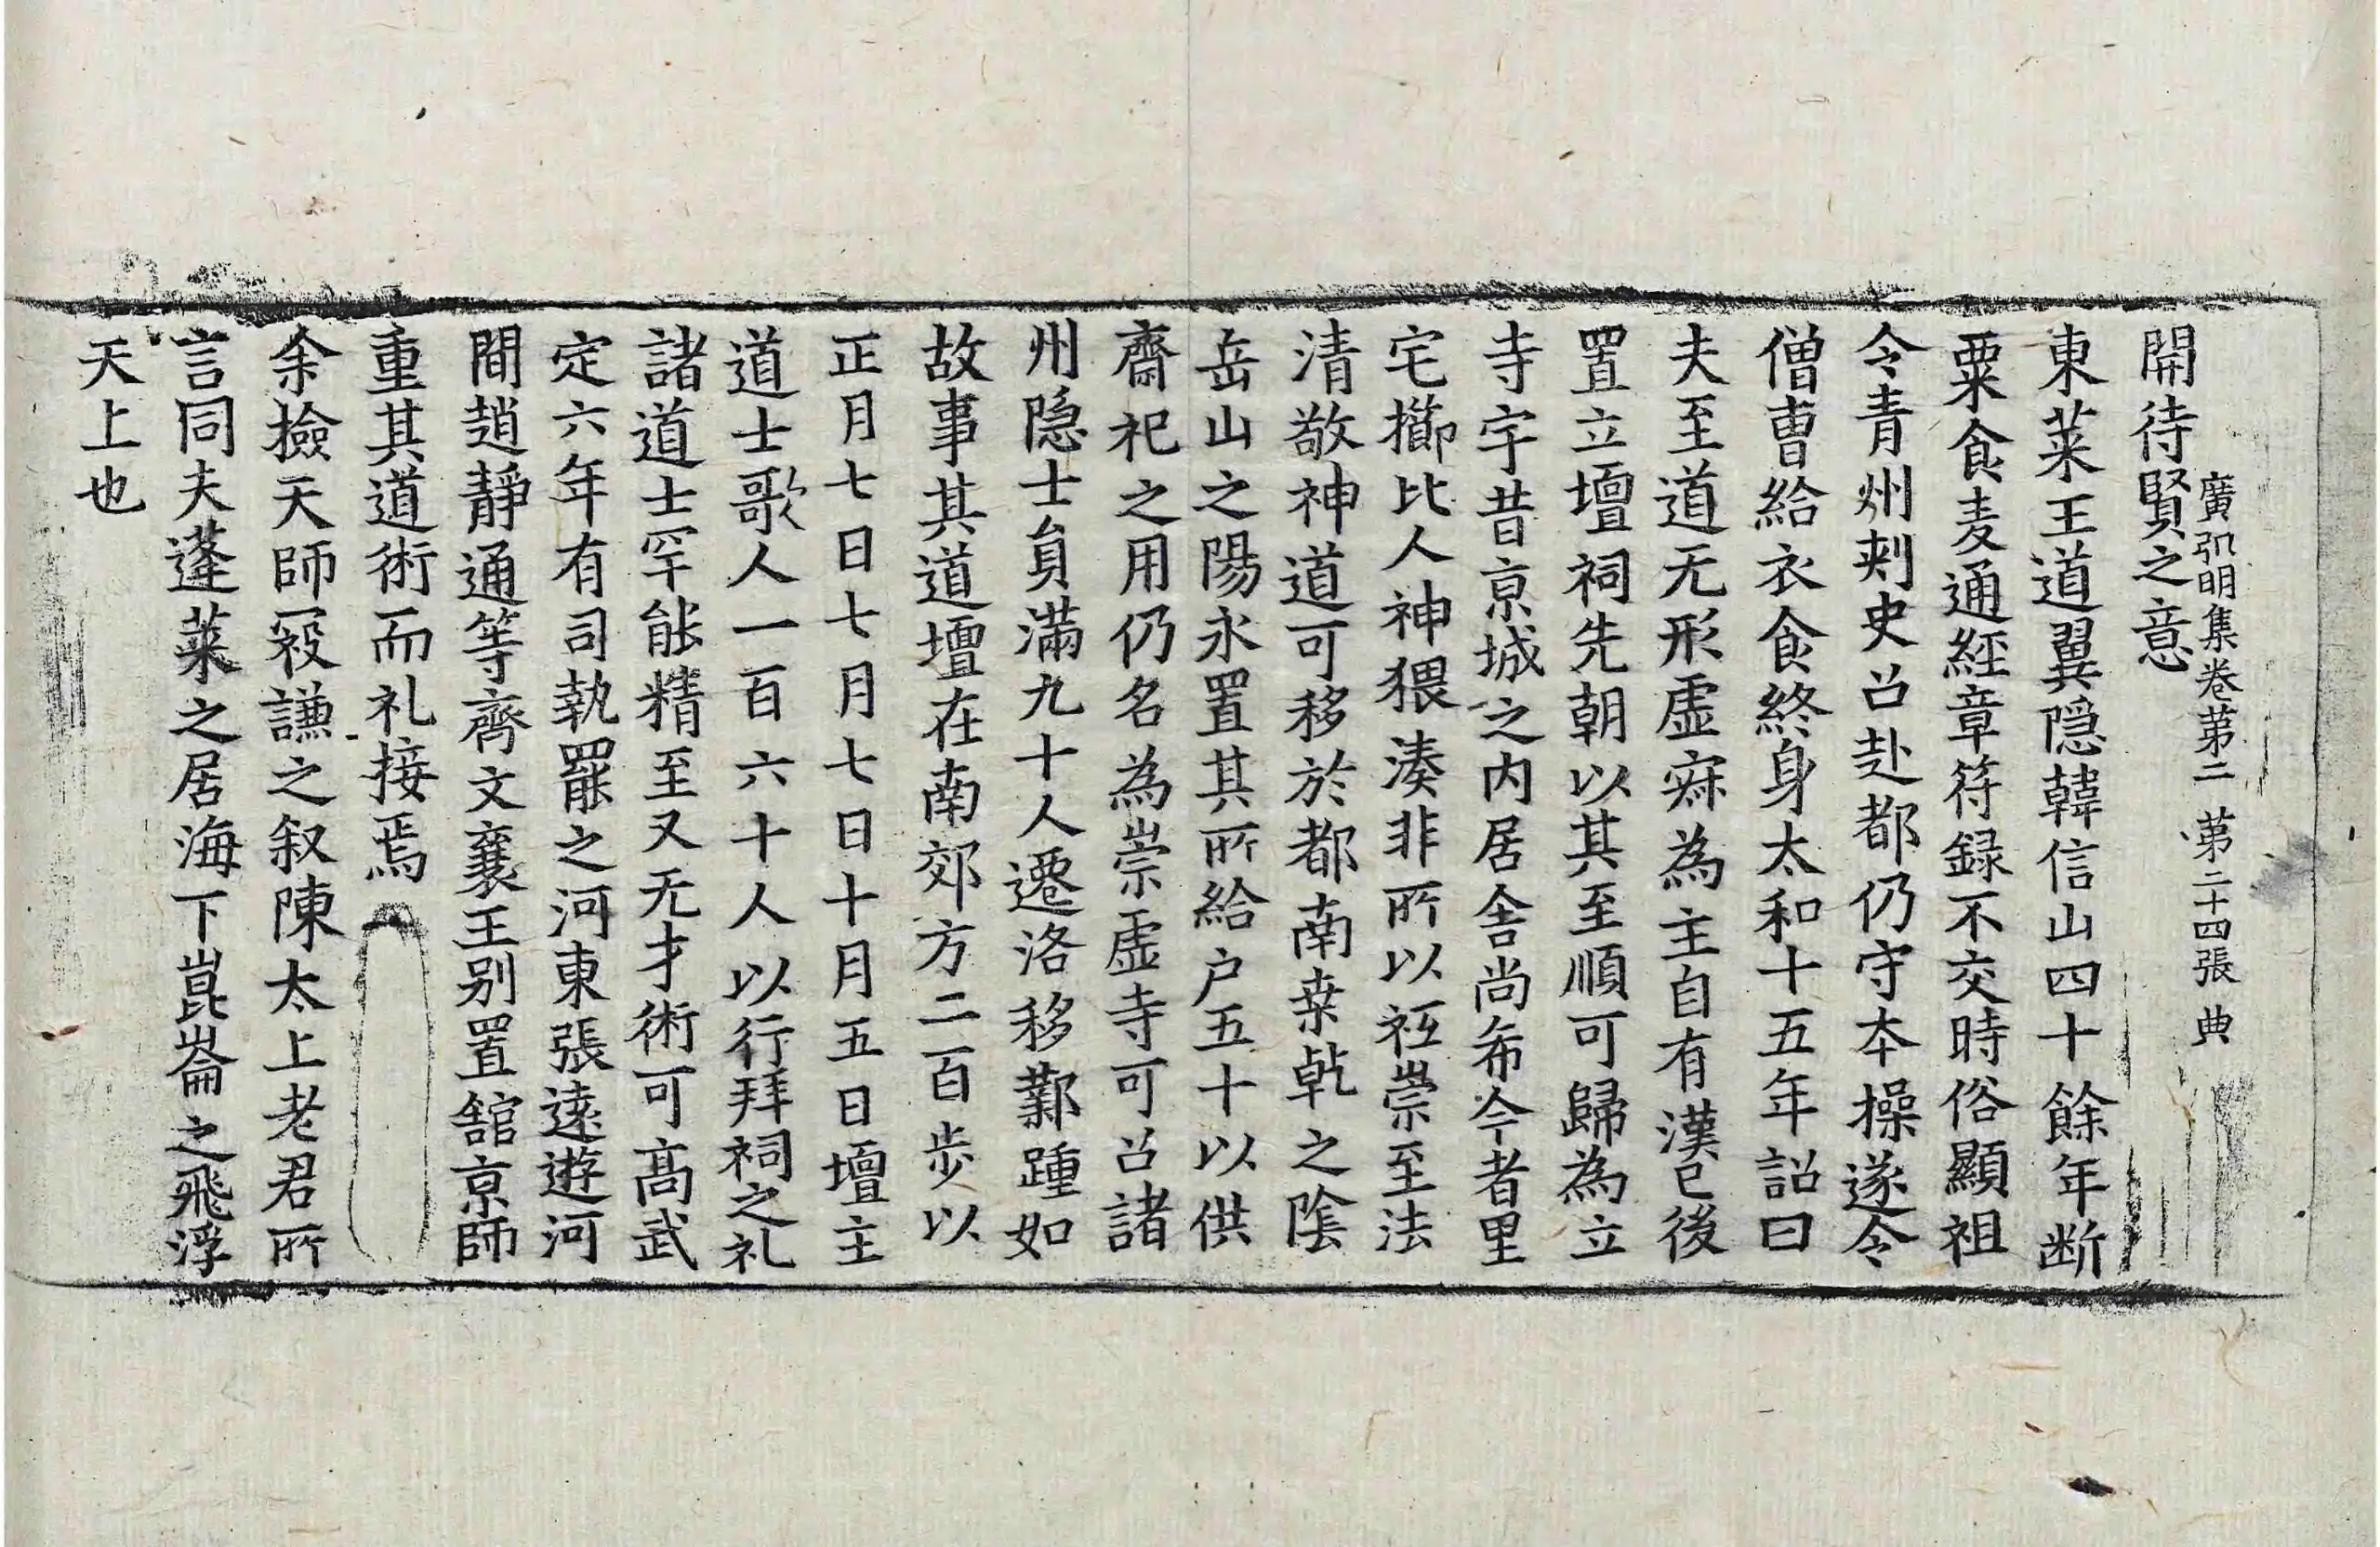 廣弘明集卷第二 第二十四張 典
開待賢之意
東萊王道翼隠韓信山四十餘年断
粟食麦通經章符録不交時俗顯祖
令青州刺史召赴都仍守夲操遂令
僧曺給衣食終身太和十五年詔曰
夫至道无形虛寂為主自有漢已後
置立壇祠先朝以其至順可歸為立
寺宇昔京城之内居舍尚希今者里
宅櫛比人神猥湊非所以祗崇至法
清敬神道可移於都南桒乹之陰
岳山之陽永置其所給户五十以供
齋祀之用仍名為崇虛寺可召諸
州隠士負滿九十人遷洛移鄴踵如
故事其道壇在南郊方二百步以
正月七日七月七日十月五日壇主
道士歌人一百六十人以行拜祠之礼
諸道士罕能精至又无才術可髙武
定六年有司執罷之河東張逺遊河
間趙靜通等齊文襄王别置舘京師
重其道術而礼接焉
余撿天師冦謙之叙陳太上老君所
言同夫蓬萊之居海下崑崙之飛浮
天上也